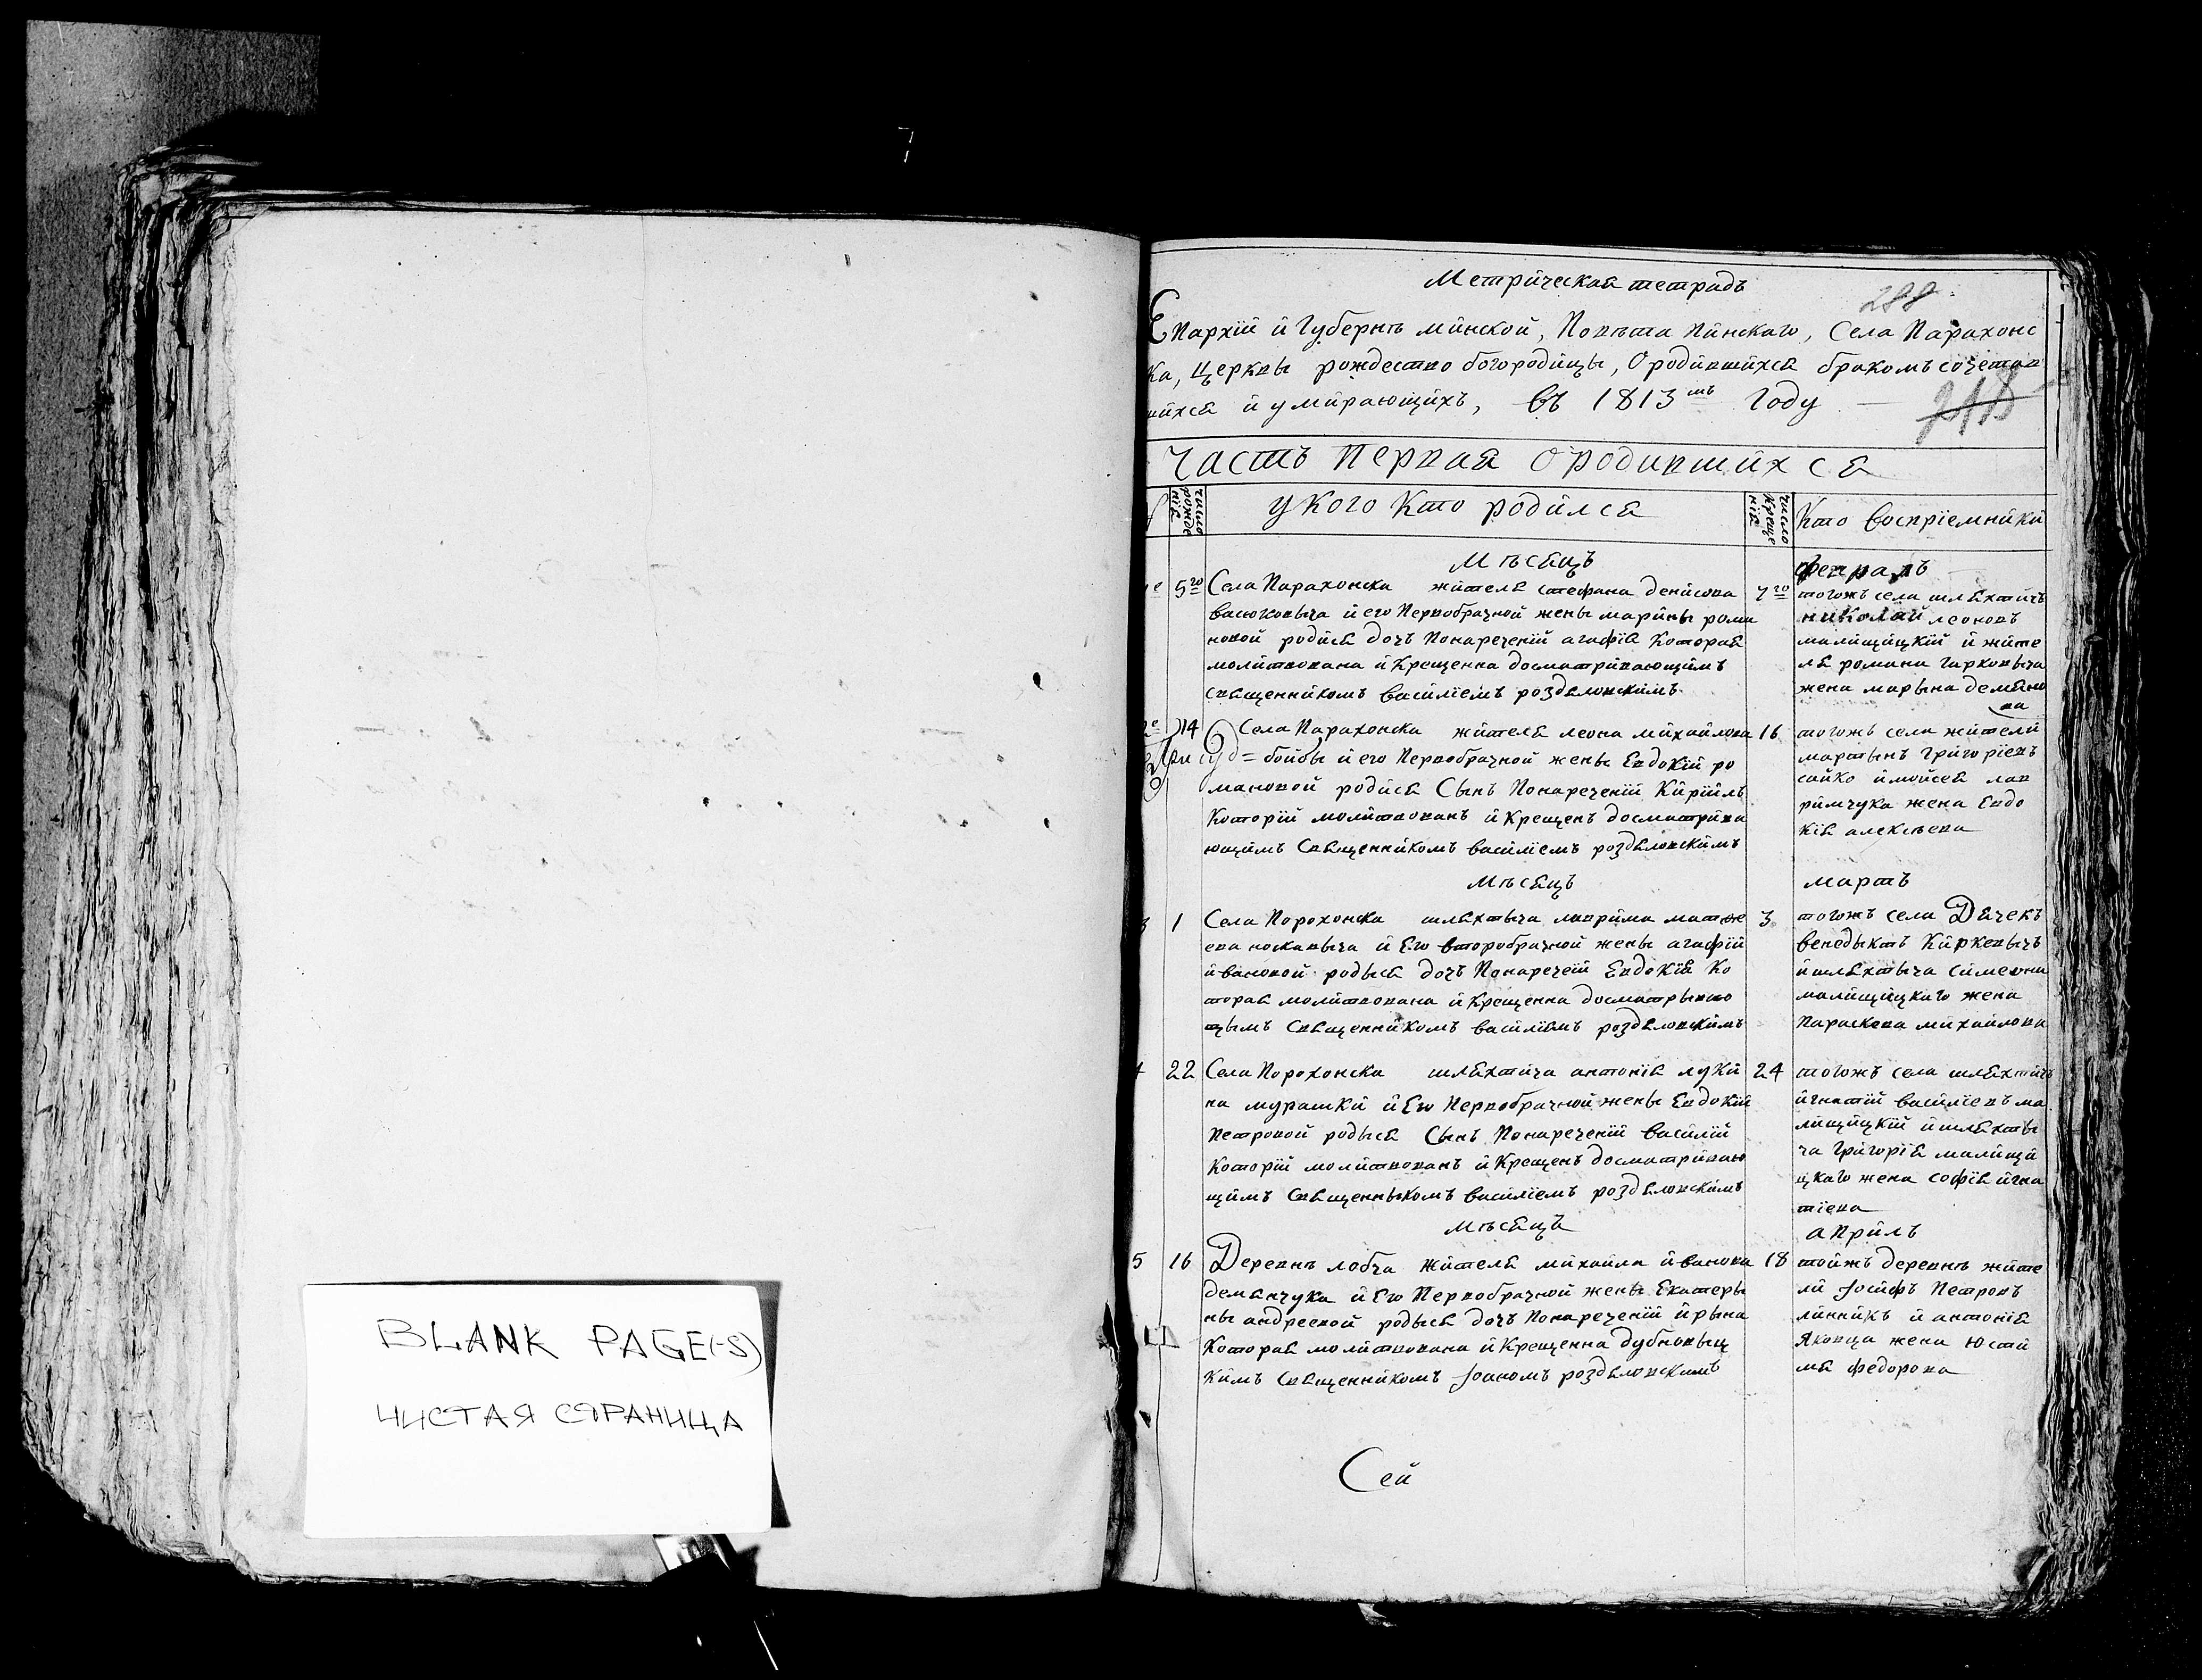 BLANK PAGE(-S)
ЧИСТАЯ СТРАНИЦА
Метрическая тетрадь
288
Епархїй й Губернѣ минской, Повѣта Пинскаго, Села Парахонс
ка, Церквы рождество богородицы, О родившихся бракомъ сочетав
шихся й умирающихъ, въ 1813мъ Году
Часть Первая О родившихся
число рожденія
у кого Кто родился
число Крещенія
Кто воспрїемники
Мѣсяцъ
февраль
5го
Села Парахонска жителя стефана денисова
васюковыча й его Первобрачной жены марины рома
новой родися дочъ Понареченїй агафїя Которая
молитвована й Крещенна досматривающимъ
священникомъ василїемъ роздяловскимъ
7го
тогожъ села шляхтичъ
николай леоновъ
малищицкїй й жите
ля романа гарковыча
жена марына демяно
ва
2е
14
Села Парахонска жителя леона михайлова
бойбы й его Первобрачной жены Евдокїй ро
мановой родися Сынъ Понареченїй Кирїилъ
Которїй молитвованъ й Крещенъ досматрива
ющимъ Священникомъ василїемъ роздяловскимъ
16
тогожъ села жители
мартынъ григорїевъ
сайко й мойсея лав
римчука жена Евдо
кїя алексѣева
Мѣсяцъ
мартъ
3
1
Села Порохонска шляхтыча лаврима матфе
ева носкавыча й Его второбрачной жены агафїй
йвановой родыся дочъ Понаречеїй Евдокїя Ко
торая молитвована й Крещенна досматрываю
щымъ Священникомъ василїемъ роздяловскимъ
3
тогожъ села Дячекъ
венедыктъ Киркевычъ
й шляхтыча симеона
малищицкаго жена
Параскева михайлова
4
22
Села Порохонска шляхтича антонїя луки
на мурашки й Его Первобрачной жены Евдокїй
Петровой родыся Сынъ Понареченїй василїй
Которїй молитвованъ й Крещенъ досматриваю
щимъ Священныкомъ василїемъ роздяловскимъ
24
тогожъ села шляхтичъ
йгнатїй василїевъ ма
лищицкїй й шляхты
ча григорїя малищи
цкаго жена софїя йгна
тїева
Мѣсяцъ
априль
5
16
Деревнѣ лобча жителя михаила йванова
демянчука й Его Первобрачной жены Екатеры
ны андреевой родыся дочъ Понареченїй йрына
Которая молитвована й Крещенна дубновыц
кимъ Священникомъ Іоаномъ роздяловскимъ
18
тойжъ деревнѣ жите
ли Іосифъ Петровъ
линникъ й антонїя
яковца жена Юсти
мя федорова
Сей